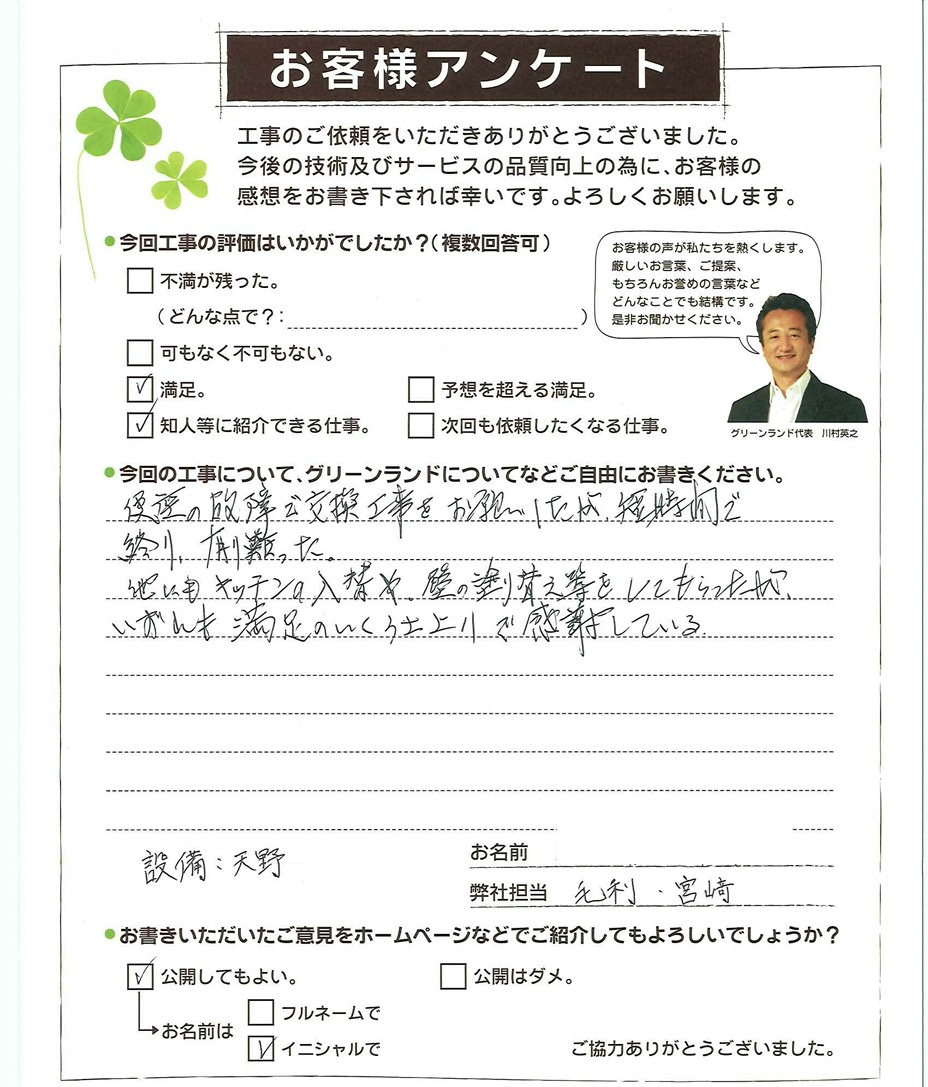 お客様アンケート
工事のご依頼をいただきありがとうございました。
今後の技術及びサービスの品質向上の為に、お客様の
感想をお書き下されば幸いです。よろしくお願いします。
今回工事の評価はいかがでしたか?(複数回答可)
お客様の声が私たちを熱くします。
厳しいお言葉、ご提案、
もちろんお誉めの言葉など
どんなことでも結構です。
是非お聞かせください。
グリーンランド代表 川村英之
不満が残った。
(どんな点で?: )
可もなく不可もない。
満足。 予想を超える満足。
知人等に紹介できる仕事。 次回も依頼したくなる仕事。
今回の工事について、グリーンランドについてなどご自由にお書きください。
便座の故障で交換工事をお願いしたが、短時間で
終り、有難った。
他にもキッチンの入替や、壁の塗り替え等をしてもらったが、
いずれも満足のいく仕上りで感謝している。
設備：天野
お名前
弊社担当 毛利・宮崎
お書きいただいたご意見をホームページなどでご紹介してもよろしいでしょうか?
公開してもよい。 公開はダメ。
お名前は
フルネームで
イニシャルで
ご協力ありがとうございました。